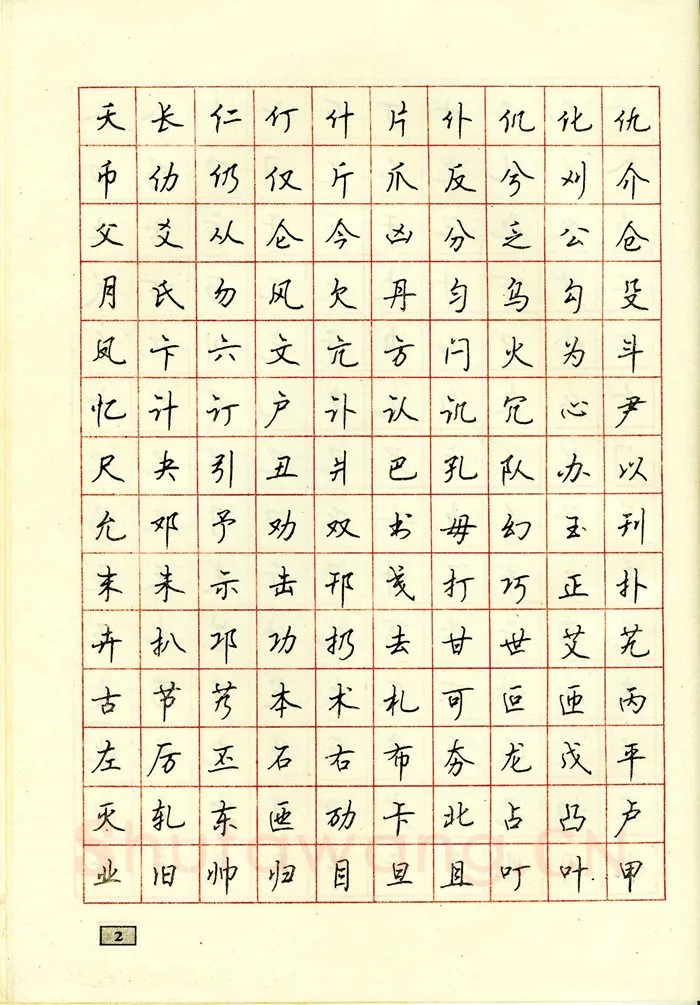 夭 长 仁 仃 什 片 仆 仉 化 仇
币 仂 仍 仅 斤 爪 反 兮 刈 介
父 爻 从 仑 今 凶 分 乏 公 仓
月 氏 勿 风 欠 丹 匀 乌 勾 殳
凤 卞 六 文 亢 方 闩 火 为 斗
忆 计 订 户 讣 认 讥 冗 心 尹
尺 夬 引 丑 爿 巴 孔 队 办 以
允 邓 予 劝 双 书 毋 幻 玉 刊
末 未 示 击 邗 戋 打 巧 正 扑
卉 扒 邛 功 扔 去 甘 世 艾 艽
古 节 艿 本 术 札 可 叵 匝 丙
左 厉 丕 石 右 布 夯 龙 戊 平
灭 轧 东 匝 劢 卡 北 占 凸 卢
业 旧 帅 归 目 旦 且 叮 叶 甲
2
Shufawang.CN